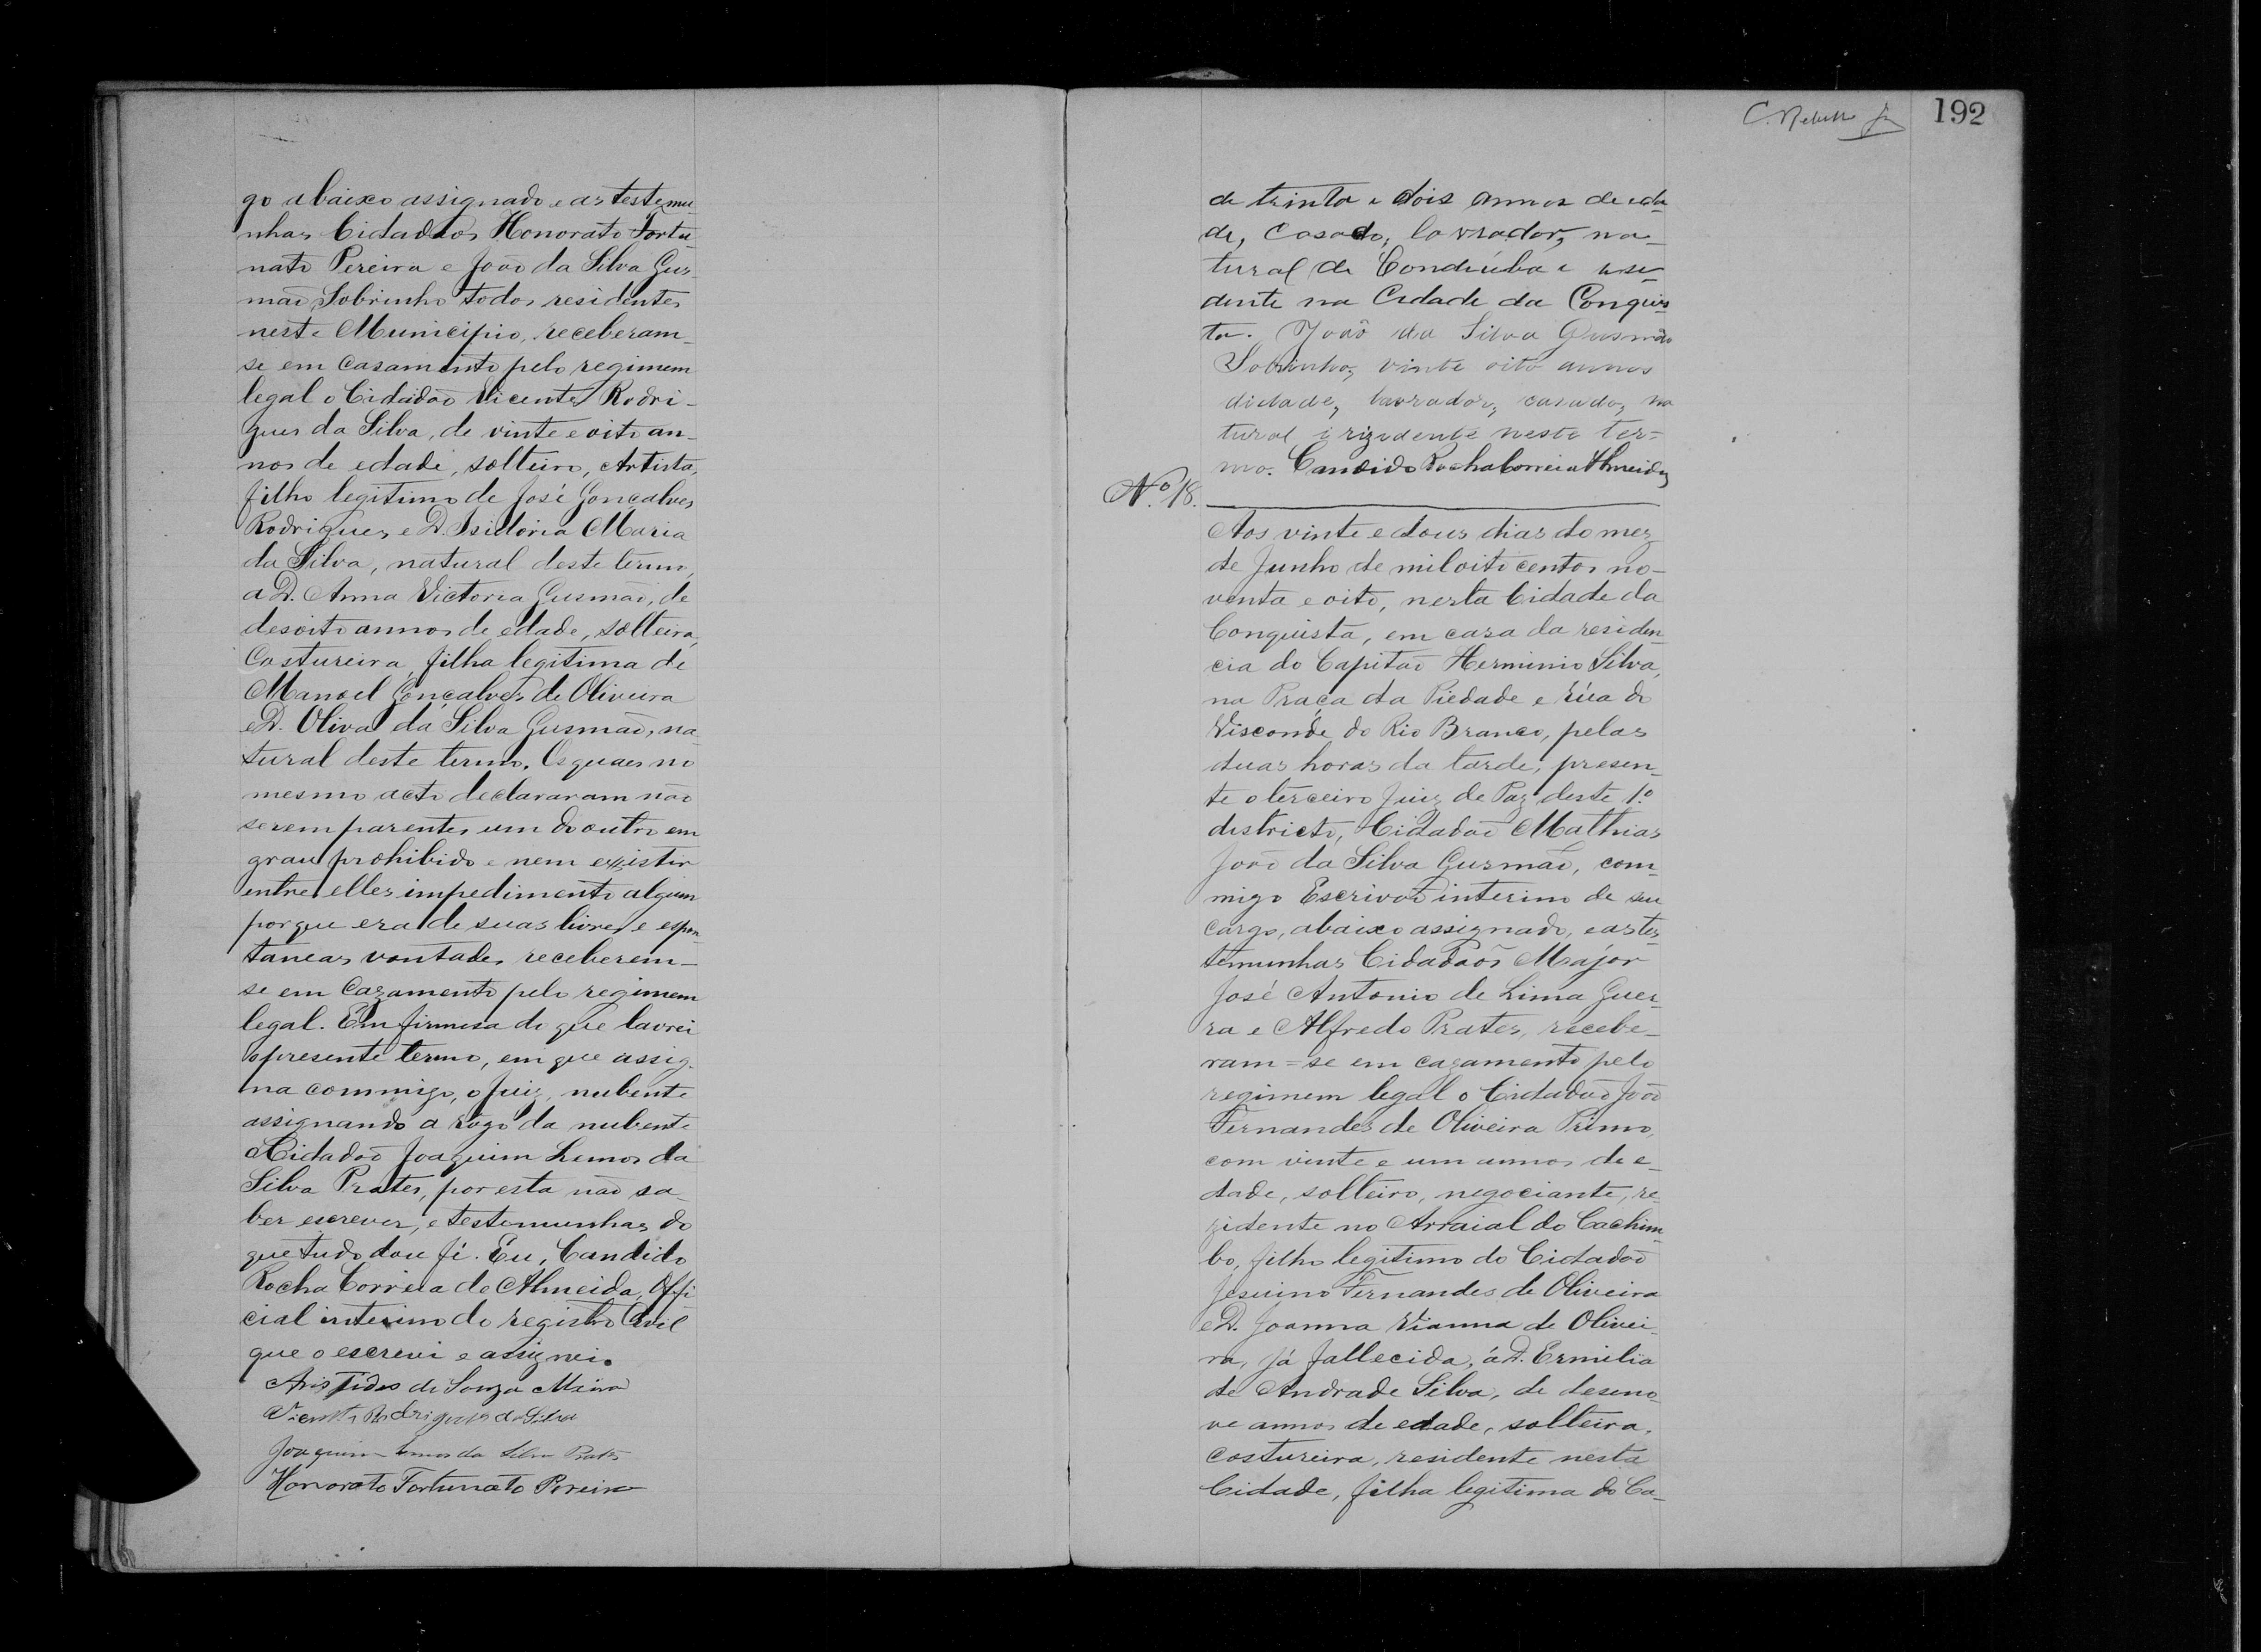 go abaixo assignado e as testemu-
nhas Cidadãos Honorato Fortu-
nato Pereira e João da Silva Gus-
mão Sobrinho todos residentes
neste Municipio, receberam-
se em casamento pelo regimem
legal o Cidadão Vicente Rodri-
gues da Silva, de vinte e oito an-
nos de edade, solteiro, Artista,
filho legitimo de José Gonçalves
Rodrigues e D. Isidoria Maria
da Silva, natural deste termo,
a D. Anna Victoria Gusmão, de
desoito annos de edade, solteira,
Costureira, filha legitima de
Manoel Gonçalves de Oliveira
e D. Oliva da Silva Gusmão, na-
tural deste termo. Os quaes no
mesmo acto declararam não
serem parentes um do outro em
grau prohibido e nem existir
entre elles impedimento algum
porque era de suas livres e espon-
taneas vontades receberem-
se em Cazamento pelo regimem
legal. Em firmesa do que lavrei
o presente termo, em que assig-
na commigo, o juiz, nubente
assignando a rogo da nubente
o Cidadão Joaquim Lemos da
Silva Prates, por esta não sa-
ber escrever, e testemunhas do
que tudo dou fé. Eu, Candido
Rocha Correia de Almeida, Offi-
cial interino do registro Civil
que o escrevi e assignei.
Aristides de Souza
Vicente Rodrigues da Silva
Joaquim Lemos da Silva Prates
Honorato Fortunato Pereira
192
de trinta e dois annos de eda-
de, Casado, lavrador, na-
tural de Condeúba e resi-
dente na Cidade da Conquis-
ta. João da Silva Gusmão
Sobrinho, vinte oito annos
didade, lavrador, casado, na
tural i rizidente neste ter-
mo. Candido Rocha Correia Almeida
Nº 18.
Aos vinte e dous dias do mez
de Junho de mil oito centos no-
venta e oito, nesta Cidade da
Conquista, em casa da residen-
cia do Capitão Herminio Silva,
na Praça da Piedade e Rúa do
Visconde do Rio Branco, pelas
duas horas da tarde, presen-
te o terceiro Juiz de Paz deste 1º
districto, Cidadão Mathias
João da Silva Gusmão, com-
migo Escrivão interino de seu
cargo, abaixo assignado, e as tes-
temunhas Cidadãos Major
José Antonio de Lima Guer-
ra e Alfredo Prates, recebe-
ram=se em cazamento pelo
regimem legal o Cidadão João
Fernandes de Oliveira Primo,
com vinte e um annos de e-
dade, solteiro, negociante, re-
zidente no Arraial do Cachim-
bo, filho legitimo do Cidadão
Jesuino Fernandes de Oliveira
e D. Joanna Vianna de Olivei-
ra, já fallecida, á D. Ermilia
de Andrade Silva, de deseno-
ve annos de edade, solteira,
costureira, residente nesta
Cidade, filha legitima do Ca-